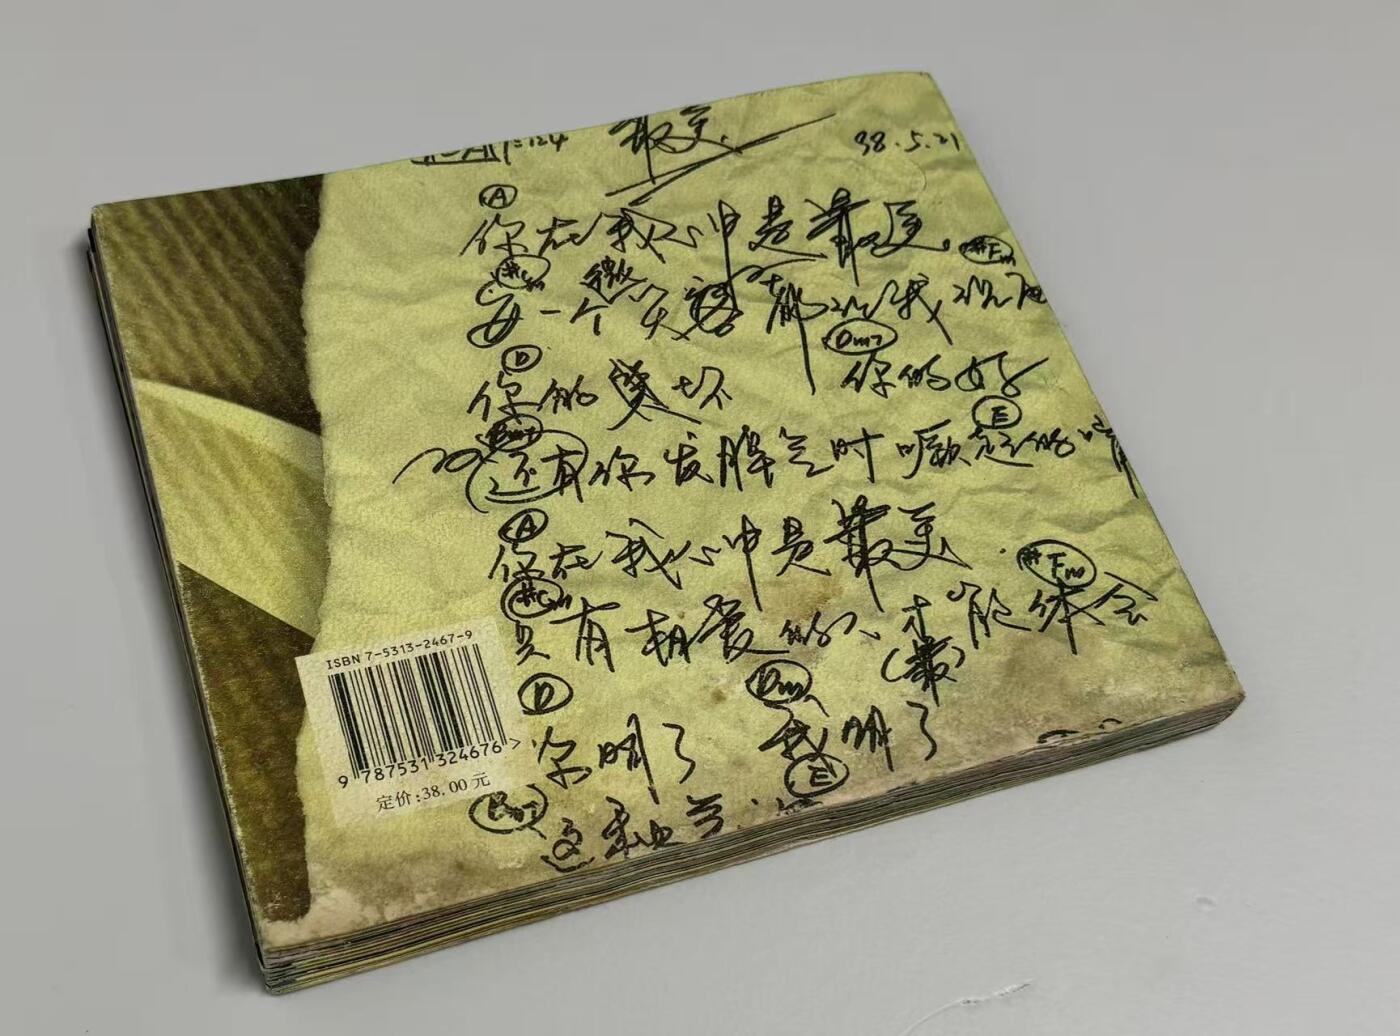 =124 最美 98.5.21
A
你在我心中是最美
#Cm 微 #Fm
每一个笑容都让我沉醉
D Dm7
你的坏 你的好
Bm7 E
还有你发脾气时噘起的嘴
A
你在我心中是最美
#Cm #Fm
只有相爱的人才能体会
(最)
D Dm
你明了 我明了
Bm7 E
这种美
ISBN 7-5313-2467-9
9 787531 324676 >
定价:38.00元